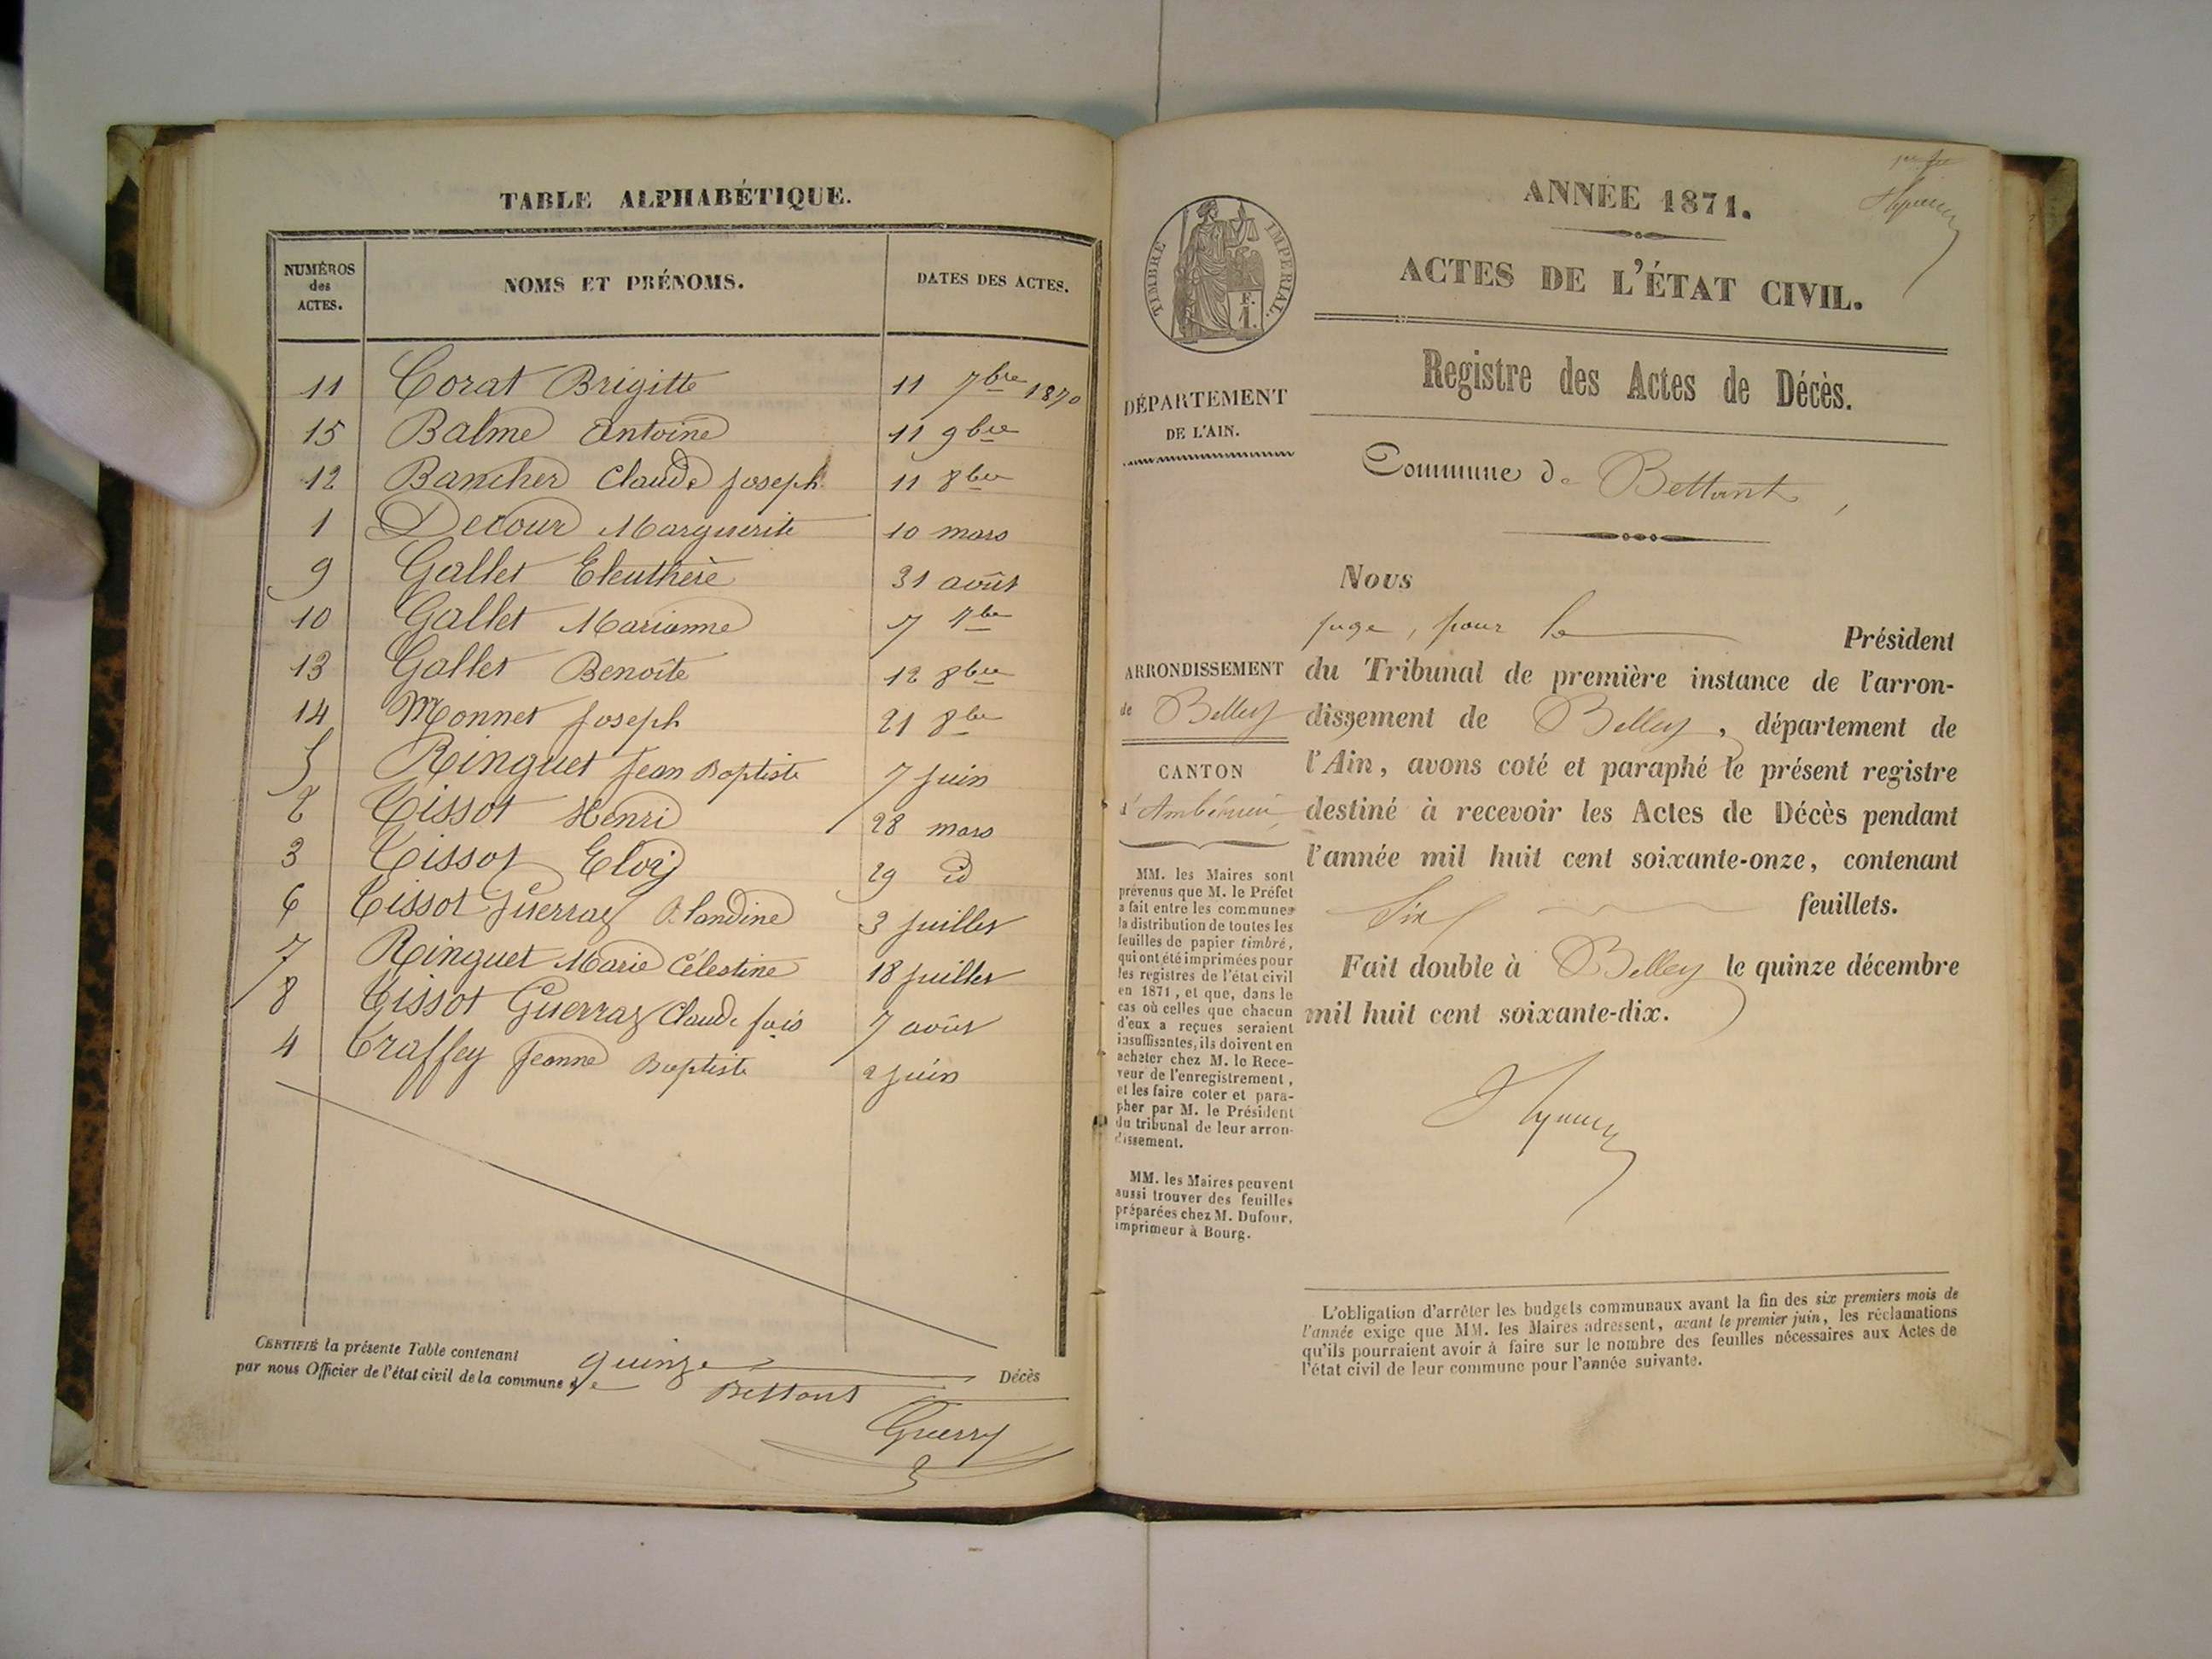 TABLE ALPHABÉTIQUE.
NUMÉROS des ACTES. NOMS ET PRÉNOMS. DATES DES ACTES.
11 Corat Brigitte 11 7bre 1870
15 Balme Antoine 11 9bre
12 Bancher Claude Joseph 11 8bre
1 Decour Marguerite 10 mars
9 Gallet Eleuthère 31 août
10 Gallet Marianne 7 7bre
13 Gallet Benoîte 12 8bre
14 Monnet Joseph 21 8bre
5 Ringuet Jean Baptiste 7 juin
2 Tissot Henri 28 mars
3 Tissot Eloi 29 id
6 Tissot Guerraz Blandine 3 juillet
7 Ringuet Marie Célestine 18 juillet
8 Tissot Guerraz Claude fois 7 août
4 Traffey Jeanne Baptiste 2 juin
CERTIFIÉ la présente Table contenant quinze Décès
par nous Officier de l'état civil de la commune de Bettant
Guerry
TIMBRE IMPÉRIAL.
F.
1.
DÉPARTEMENT
DE L'AIN.
ARRONDISSEMENT
de Belley
CANTON
d'Ambérieu
MM. les Maires sont
prévenus que M. le Préfet
a fait entre les communes
la distribution de toutes les
feuilles de papier timbré,
qui ont été imprimées pour
les registres de l'état civil
en 1871, et que, dans le
cas où celles que chacun
d'eux a reçues seraient
insuffisantes, ils doivent en
acheter chez M. le Rece-
veur de l'enregistrement,
et les faire coter et para-
pher par M. le Président
du tribunal de leur arron-
dissement.
MM. les Maires peuvent
aussi trouver des feuilles
préparées chez M. Dufour,
imprimeur à Bourg.
ANNÉE 1871.
ACTES DE L'ÉTAT CIVIL.
Registre des Actes de Décès.
Commune de Bettant,
Nous
juge, pour le Président
du Tribunal de première instance de l'arron-
dissement de Belley, département de
l'Ain, avons coté et paraphé le présent registre
destiné à recevoir les Actes de Décès pendant
l'année mil huit cent soixante-onze, contenant
Six feuillets.
Fait double à Belley le quinze décembre
mil huit cent soixante-dix.
L'obligation d'arrêter les budgets communaux avant la fin des six premiers mois de
l'année exige que MM. les Maires adressent, avant le premier juin, les réclamations
qu'ils pourraient avoir à faire sur le nombre des feuilles nécessaires aux Actes de
l'état civil de leur commune pour l'année suivante.